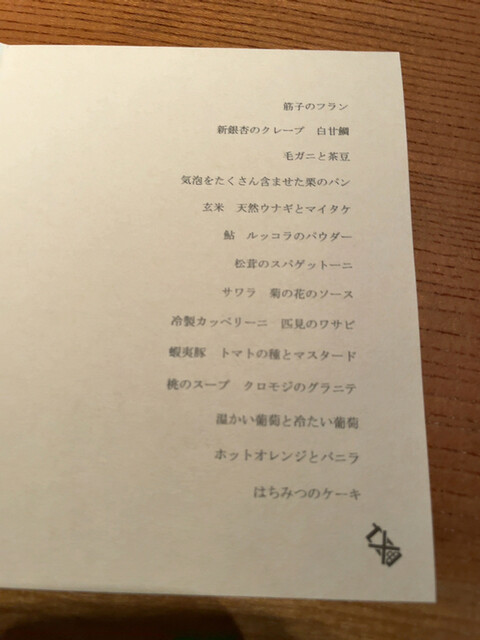 筋子のフラン
新銀杏のクレープ　白甘鯛
毛ガニと茶豆
気泡をたくさん含ませた栗のパン
玄米　天然ウナギとマイタケ
鮎　ルッコラのパウダー
松茸のスパゲットーニ
サワラ　菊の花のソース
冷製カッペリーニ　匹見のワサビ
蝦夷豚　トマトの種とマスタード
桃のスープ　クロモジのグラニテ
温かい葡萄と冷たい葡萄
ホットオレンジとバニラ
はちみつのケーキ